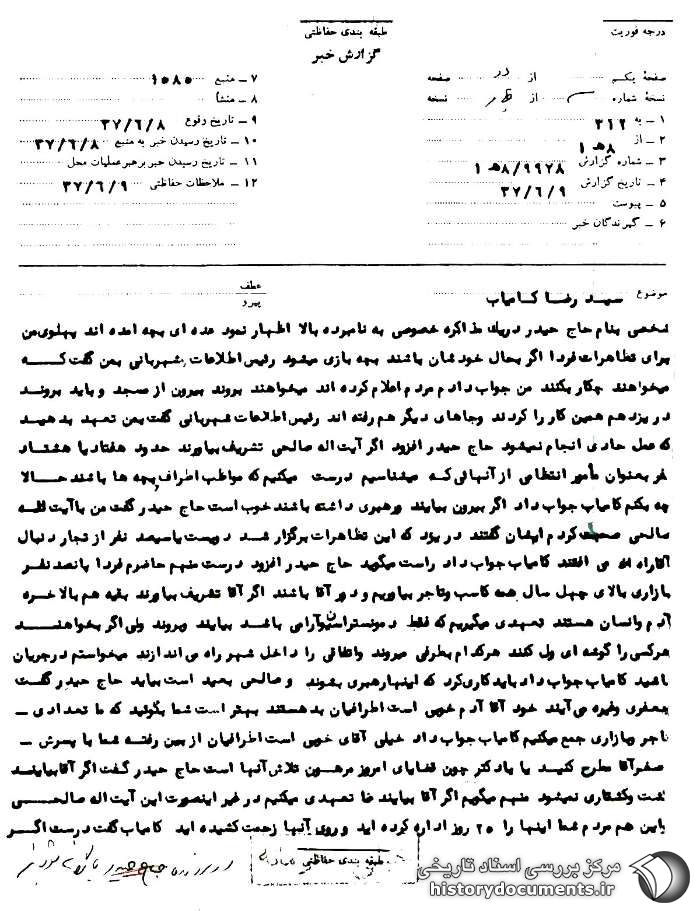 درجه فوریت
طبقه بندی حفاظتی
گزارش خبر
صفحهٔ یکم از دو صفحه
نسخهٔ شماره از نسخه
۱ – به ۳۱۲
۲ – از ۸هـ ۱
۳ – شماره گزارش ۸/۹۹۷۸هـ ۱
۴ – تاریخ گزارش ۳۷/۶/۹
۵ – پیوست
۶ – گیرندگان خبر
۷ – منبع ۱۰۸۰
۸ – منشأ
۹ – تاریخ وقوع ۳۷/۶/۸
۱۰ – تاریخ رسیدن خبر به منبع ۳۷/۶/۸
۱۱ – تاریخ رسیدن خبر برهبر عملیات محل
۱۲ – ملاحظات حفاظتی ۳۷/۶/۹
موضوع سید رضا کامیاب
عطف
پیرو
شخصی بنام حاج حیدر دریک مذاکره خصوصی به نامبرده بالا اظهار نمود عده ای بچه آمده اند پهلوی من
برای تظاهرات فردا اگر بحال خودشان باشند بچه بازی میشود رئیس اطلاعات شهربانی بمن گفت کـه
میخواهند چکار بکنند من جواب دادم مردم اعلام کرده اند میخواهند بروند بیرون از مسجد و باید بروند
در یزد هم همین کار را کردند وجاهای دیگر هم رفته اند رئیس اطلاعات شهربانی گفت بمن تعهد بدهید
که عمل حادی انجام نمیشود حاج حیدر افزود اگر آیت اله صالحی تشریف بیاورند حدود هفتاد یا هشتاد
نفر بعنوان مأمور انتظامی از آنهائی کـه میشناسیم درست میکنیم که مواظب اطراف بچه ها باشند حـالا
چه بکنم کامیاب جواب داد اگر بیرون بیایند ورهبری داشته باشند خوب است حاج حیدر گفت من با آیت الله
صالحی صحبت کردم ایشان گفتند در یزد که این تظاهرات برگزار شد دویست یا سیصد نفر از تجار دنبال
آقا راه می افتند کامیاب جواب داد راست میگوید حاج حیدر افزود درست منهم حاضرم فردا پانصد نفر
بازاری بالای چهل سال همه کاسب وتاجر بیاوریم و دور آقا باشند اگر آقا تشریف بیاورند بقیه هم بالاخره
آدم وانسان هستند تعهدی میگیریم که فقط دمونستراسیون وآرامی باشد بیایند وبروند ولی اگر بخواهنـد
هرکسی را گوشه ای ول کنند هرکدام بطرفی میروند واتفاقی را داخل شهر راه می اندازند میخواستم درجریان
باشید کامیاب جواب داد باید کاری کرد که اینها رهبری بشوند و صالحی بعید است بیاید حاج حیدر گفت
جعفری وغیره می آیند خود آقا آدم خوبی است اطرافیان بد هستند بهتر است شما بگوئید که ما تعدادی –
تاجر وبازاری جمع میکنیم کامیاب جواب داد خیلی آقای خوبی است اطرافیان از بین رفته شما با پسرش –
صفر آقا مطرح کنید یا با دکتر چون قضایای امروز مرهـون تلاش آنها است حاج حیدر گفت اگر آقا بیاینـد
کشت وکشتاری نمیشود منهم میگویم اگر آقا بیایند ما تعهدی میکنیم در غیر اینصورت این آیت اله صالحـی
با این هم مردم شما اینها را ۲۵ روز اداره کرده اید و روی آنها زحمت کشیده اید کامیاب گفت درست اگـر
طبقه بندی حفاظتی
مرکز بررسی اسناد تاریخی
historydocuments.ir